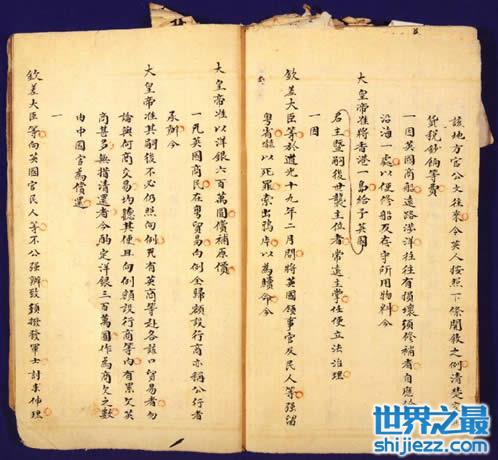 該地方官公文往來令英人按照下條開叙之例清楚交
貨稅鈔餉等費
一因英國商船遠路涉洋往往有損壞須修補者自應給
沿海一處以便修船及存守所用物料今
大皇帝准將香港一島給予英國
君主暨嗣後世襲主位者常遠主掌任便立法治理
一因
欽差大臣等於道光十九年二月間將英國領事官及民人等強留
粵省嚇以死罪索出鴉片以為贖命今
大皇帝准以洋銀六百萬圓償補原價
一凡英國商民在粵貿易向例全歸額設行商亦稱公行者
承辦今
大皇帝准其嗣後不必仍照向例凡有英商等赴各該口貿易者勿
論與何商交易均聽其便且向例額設行商等內有累欠英
商甚多無措清還者今酌定洋銀三百萬圓作為商欠之數
由中國官為償還
一
欽差大臣等向英國官民人等不公強辦致須撥發軍士討求伸理
世界之最
shijiezz.com